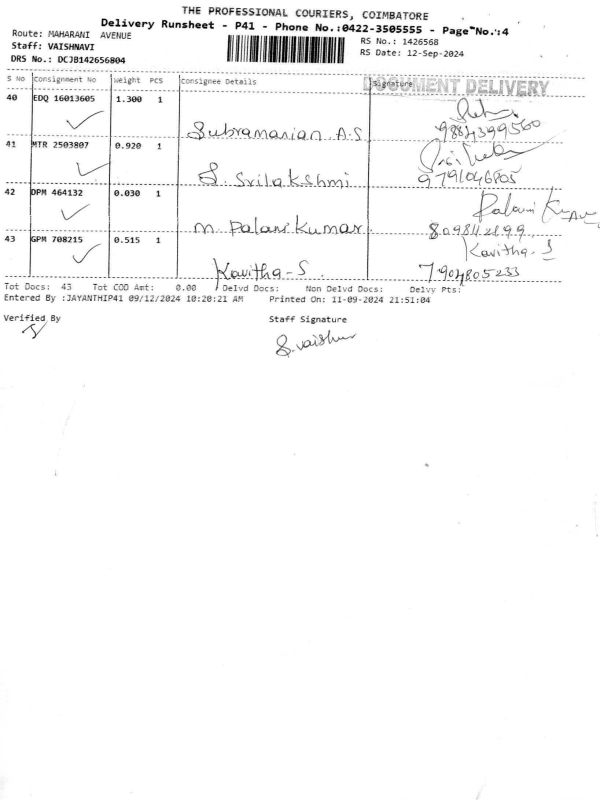 THE PROFESSIONAL COURIERS, COIMBATORE
Delivery Runsheet - P41 - Phone No.:0422-3505555 - Page No.:4
Route: MAHARANI AVENUE
Staff: VAISHNAVI
DRS No.: DCJB142656804
RS No.: 1426568
RS Date: 12-Sep-2024
DOCUMENT DELIVERY
S No Consignment No Weight PCS Consignee Details Signature
40 EDQ 16013605 1.300 1
Subramanian A.S 9884399560
41 MTR 2503807 0.920 1
S. Srilakshmi 9791046805
42 DPM 464132 0.030 1 Palani Kumar
M. Palani Kumar 8098142199
43 GPM 708215 0.515 1 Kavitha-S
Kavitha-S. 7904805233
Tot Docs: 43 Tot COD Amt: 0.00 Delvd Docs: Non Delvd Docs: Delvy Pts:
Entered By :JAYANTHIP41 09/12/2024 10:20:21 AM Printed On: 11-09-2024 21:51:04
Verified By Staff Signature